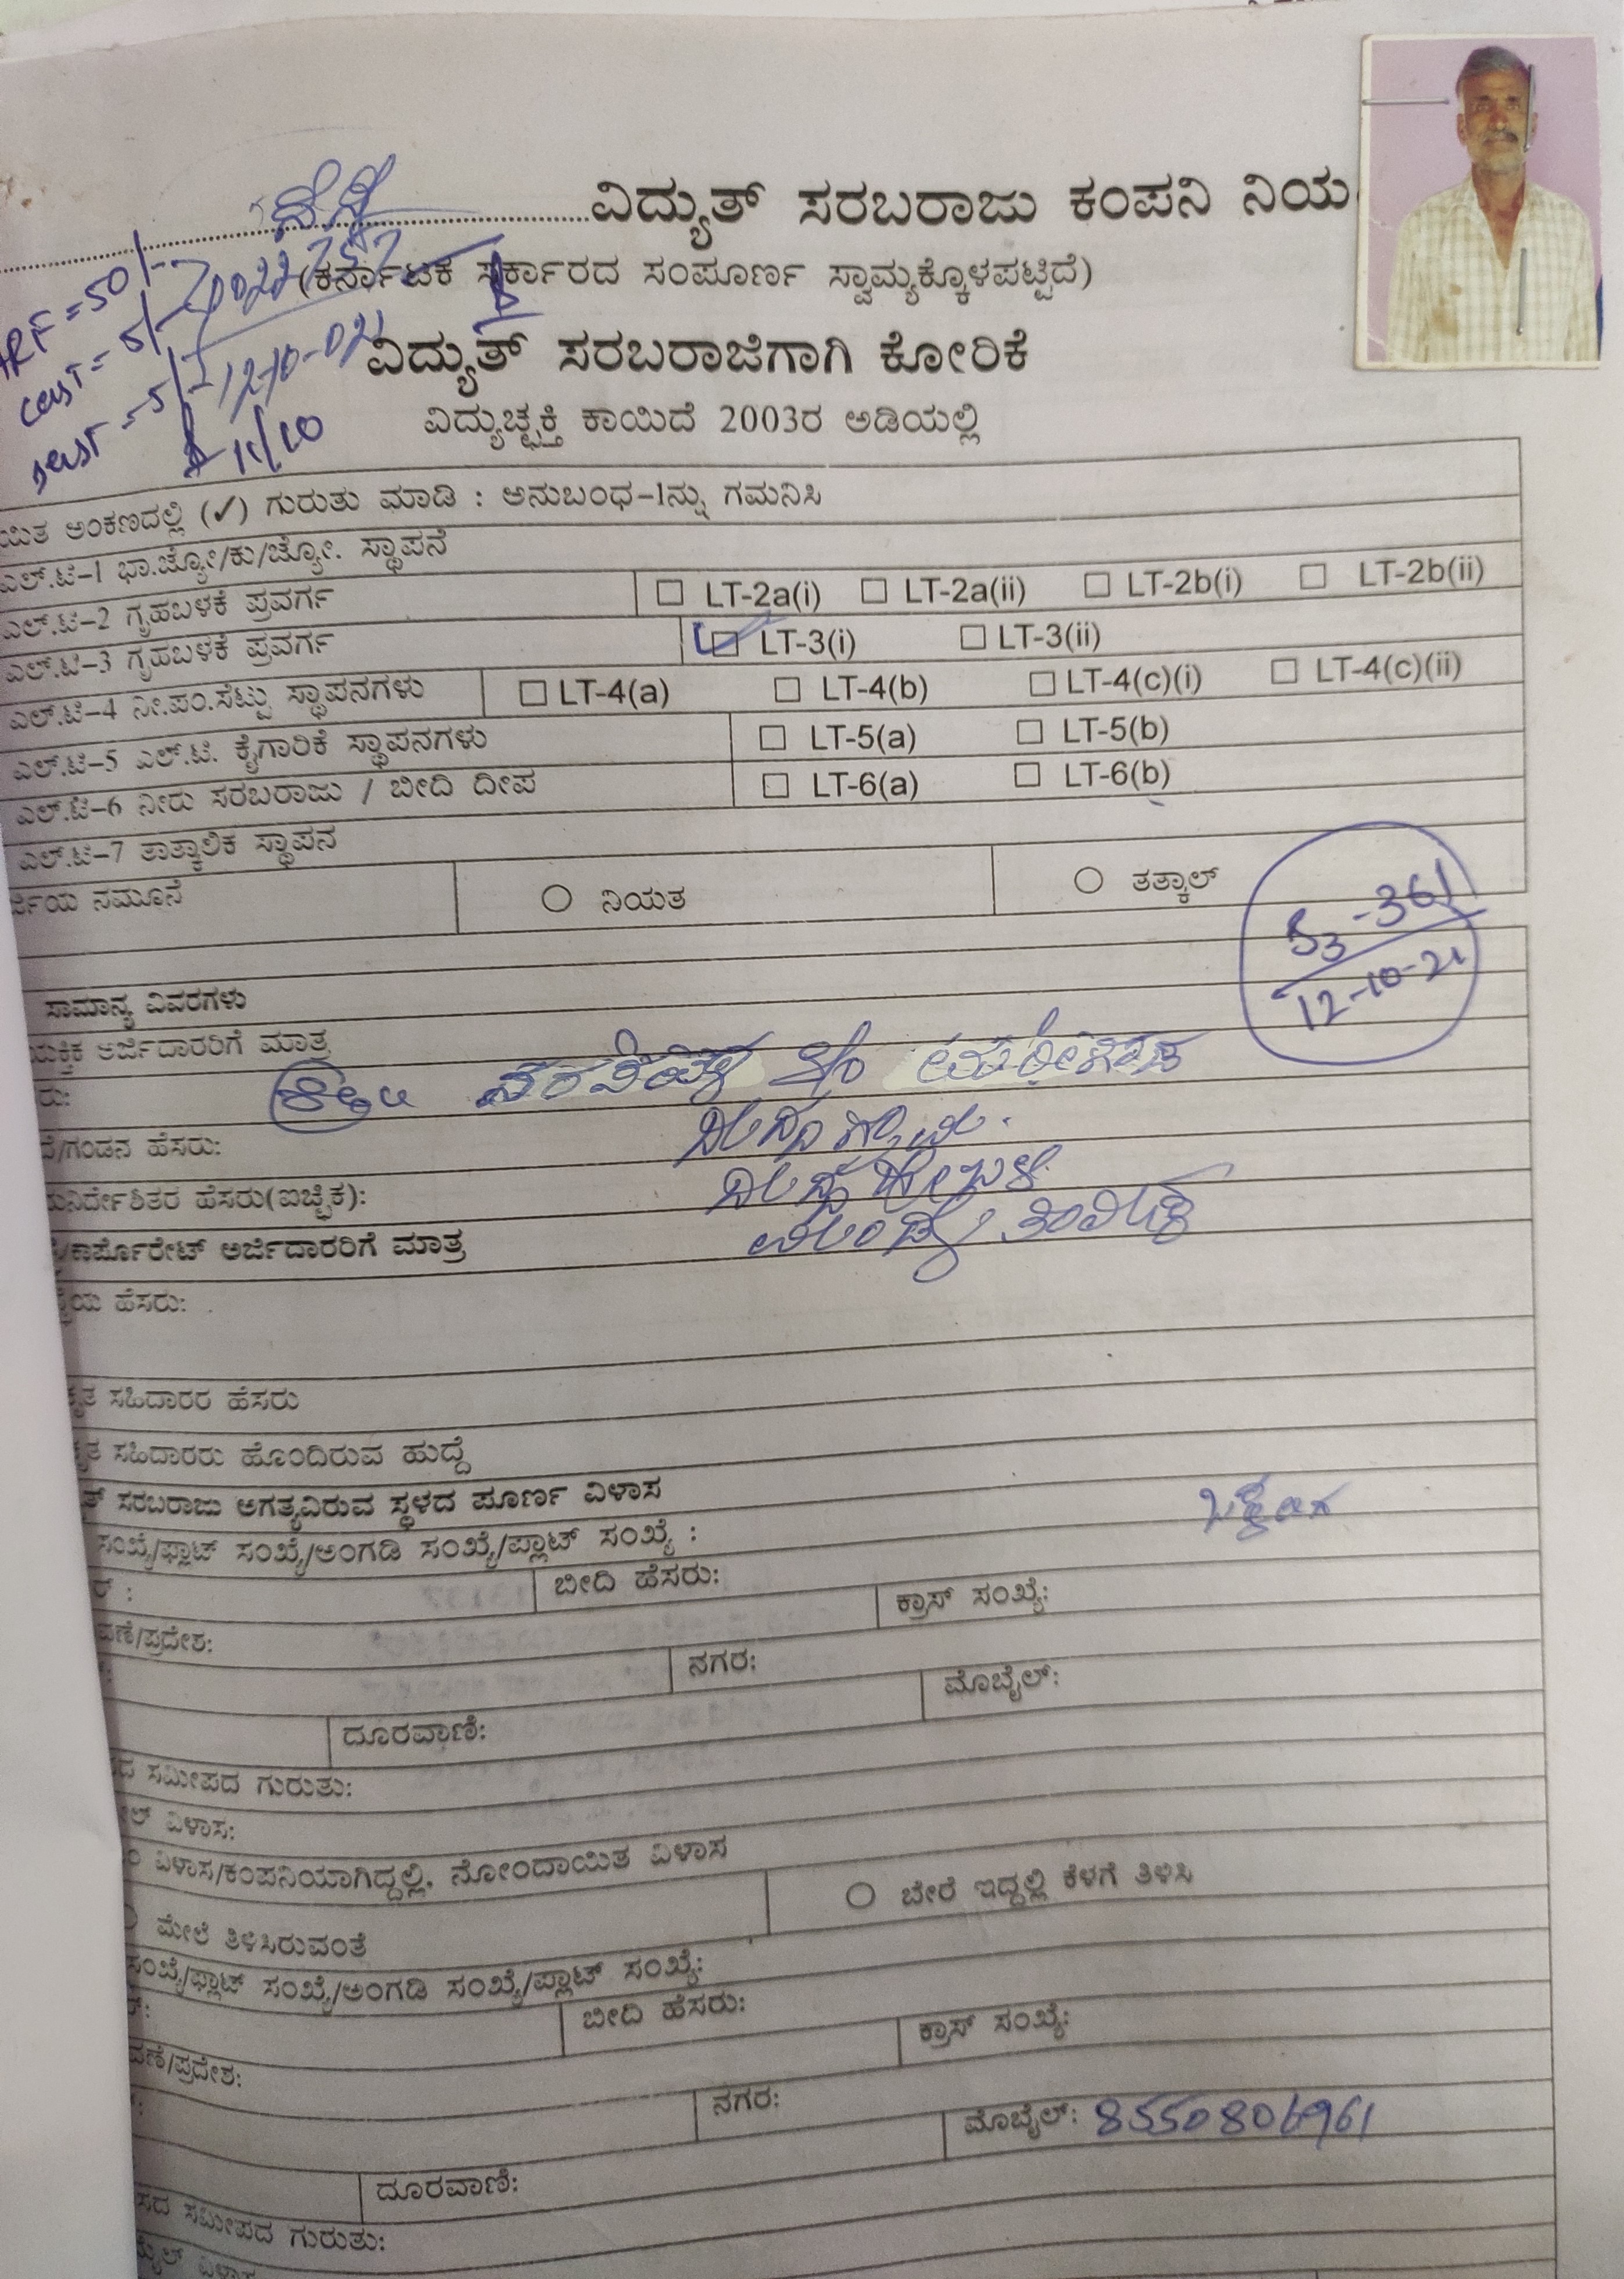 ವಿದ್ಯುತ್ ಸರಬರಾಜು ಕಂಪನಿ ನಿಯ
(ಕರ್ನಾಟಕ ಸರ್ಕಾರದ ಸಂಪೂರ್ಣ ಸ್ವಾಮ್ಯಕ್ಕೊಳಪಟ್ಟಿದೆ)
=50/-
cast = 5/-
= 5/- 12-10-021
11/10
ವಿದ್ಯುತ್ ಸರಬರಾಜಿಗಾಗಿ ಕೋರಿಕೆ
ವಿದ್ಯುಚ್ಛಕ್ತಿ ಕಾಯಿದೆ 2003ರ ಅಡಿಯಲ್ಲಿ
ಯಿತ ಅಂಕಣದಲ್ಲಿ (✓) ಗುರುತು ಮಾಡಿ : ಅನುಬಂಧ-1ನ್ನು ಗಮನಿಸಿ
ಎಲ್.ಟಿ-1 ಭಾ.ಜ್ಯೋ/ಕು/ಜ್ಯೋ. ಸ್ಥಾಪನೆ
ಎಲ್.ಟಿ-2 ಗೃಹಬಳಕೆ ಪ್ರವರ್ಗ ☐ LT-2a(i) ☐ LT-2a(ii) ☐ LT-2b(i) ☐ LT-2b(ii)
ಎಲ್.ಟಿ-3 ಗೃಹಬಳಕೆ ಪ್ರವರ್ಗ ☑ LT-3(i) ☐ LT-3(ii)
ಎಲ್.ಟಿ-4 ನೀ.ಪಂ.ಸೆಟ್ಟು ಸ್ಥಾಪನಗಳು ☐ LT-4(a) ☐ LT-4(b) ☐ LT-4(c)(i) ☐ LT-4(c)(ii)
ಎಲ್.ಟಿ-5 ಎಲ್.ಟಿ. ಕೈಗಾರಿಕೆ ಸ್ಥಾಪನಗಳು ☐ LT-5(a) ☐ LT-5(b)
ಎಲ್.ಟಿ-6 ನೀರು ಸರಬರಾಜು / ಬೀದಿ ದೀಪ ☐ LT-6(a) ☐ LT-6(b)
ಎಲ್.ಟಿ-7 ತಾತ್ಕಾಲಿಕ ಸ್ಥಾಪನ
ರ್ಜಿಯ ನಮೂನೆ ○ ನಿಯತ ○ ತತ್ಕಾಲ್
-361
12-10-21
ಸಾಮಾನ್ಯ ವಿವರಗಳು
ಯಕ್ತಿಕ ಅರ್ಜಿದಾರರಿಗೆ ಮಾತ್ರ
ರು:
ದೆ/ಗಂಡನ ಹೆಸರು:
ಮನಿರ್ದೇಶಿತರ ಹೆಸರು(ಐಚ್ಛಿಕ):
/ಕಾರ್ಪೊರೇಟ್ ಅರ್ಜಿದಾರರಿಗೆ ಮಾತ್ರ
ಥೆಯ ಹೆಸರು:
ಕೃತ ಸಹಿದಾರರ ಹೆಸರು
ಕೃತ ಸಹಿದಾರರು ಹೊಂದಿರುವ ಹುದ್ದೆ
ತ್ ಸರಬರಾಜು ಅಗತ್ಯವಿರುವ ಸ್ಥಳದ ಪೂರ್ಣ ವಿಳಾಸ
ಸಂಖ್ಯೆ/ಫ್ಲಾಟ್ ಸಂಖ್ಯೆ/ಅಂಗಡಿ ಸಂಖ್ಯೆ/ಪ್ಲಾಟ್ ಸಂಖ್ಯೆ :
ರ್ : ಬೀದಿ ಹೆಸರು: ಕ್ರಾಸ್ ಸಂಖ್ಯೆ:
ವಣೆ/ಪ್ರದೇಶ: ನಗರ: ಮೊಬೈಲ್:
ದೂರವಾಣಿ:
ದ ಸಮೀಪದ ಗುರುತು:
ಲ್ ವಿಳಾಸ:
ವಿಳಾಸ/ಕಂಪನಿಯಾಗಿದ್ದಲ್ಲಿ, ನೋಂದಾಯಿತ ವಿಳಾಸ
ಮೇಲೆ ತಿಳಿಸಿರುವಂತೆ ○ ಬೇರೆ ಇದ್ದಲ್ಲಿ ಕೆಳಗೆ ತಿಳಿಸಿ
ಸಂಖ್ಯೆ/ಫ್ಲಾಟ್ ಸಂಖ್ಯೆ/ಅಂಗಡಿ ಸಂಖ್ಯೆ/ಪ್ಲಾಟ್ ಸಂಖ್ಯೆ:
ಬೀದಿ ಹೆಸರು: ಕ್ರಾಸ್ ಸಂಖ್ಯೆ:
ವಣೆ/ಪ್ರದೇಶ: ನಗರ: ಮೊಬೈಲ್: 8550806961
ದೂರವಾಣಿ:
ಸದ ಸಮೀಪದ ಗುರುತು: